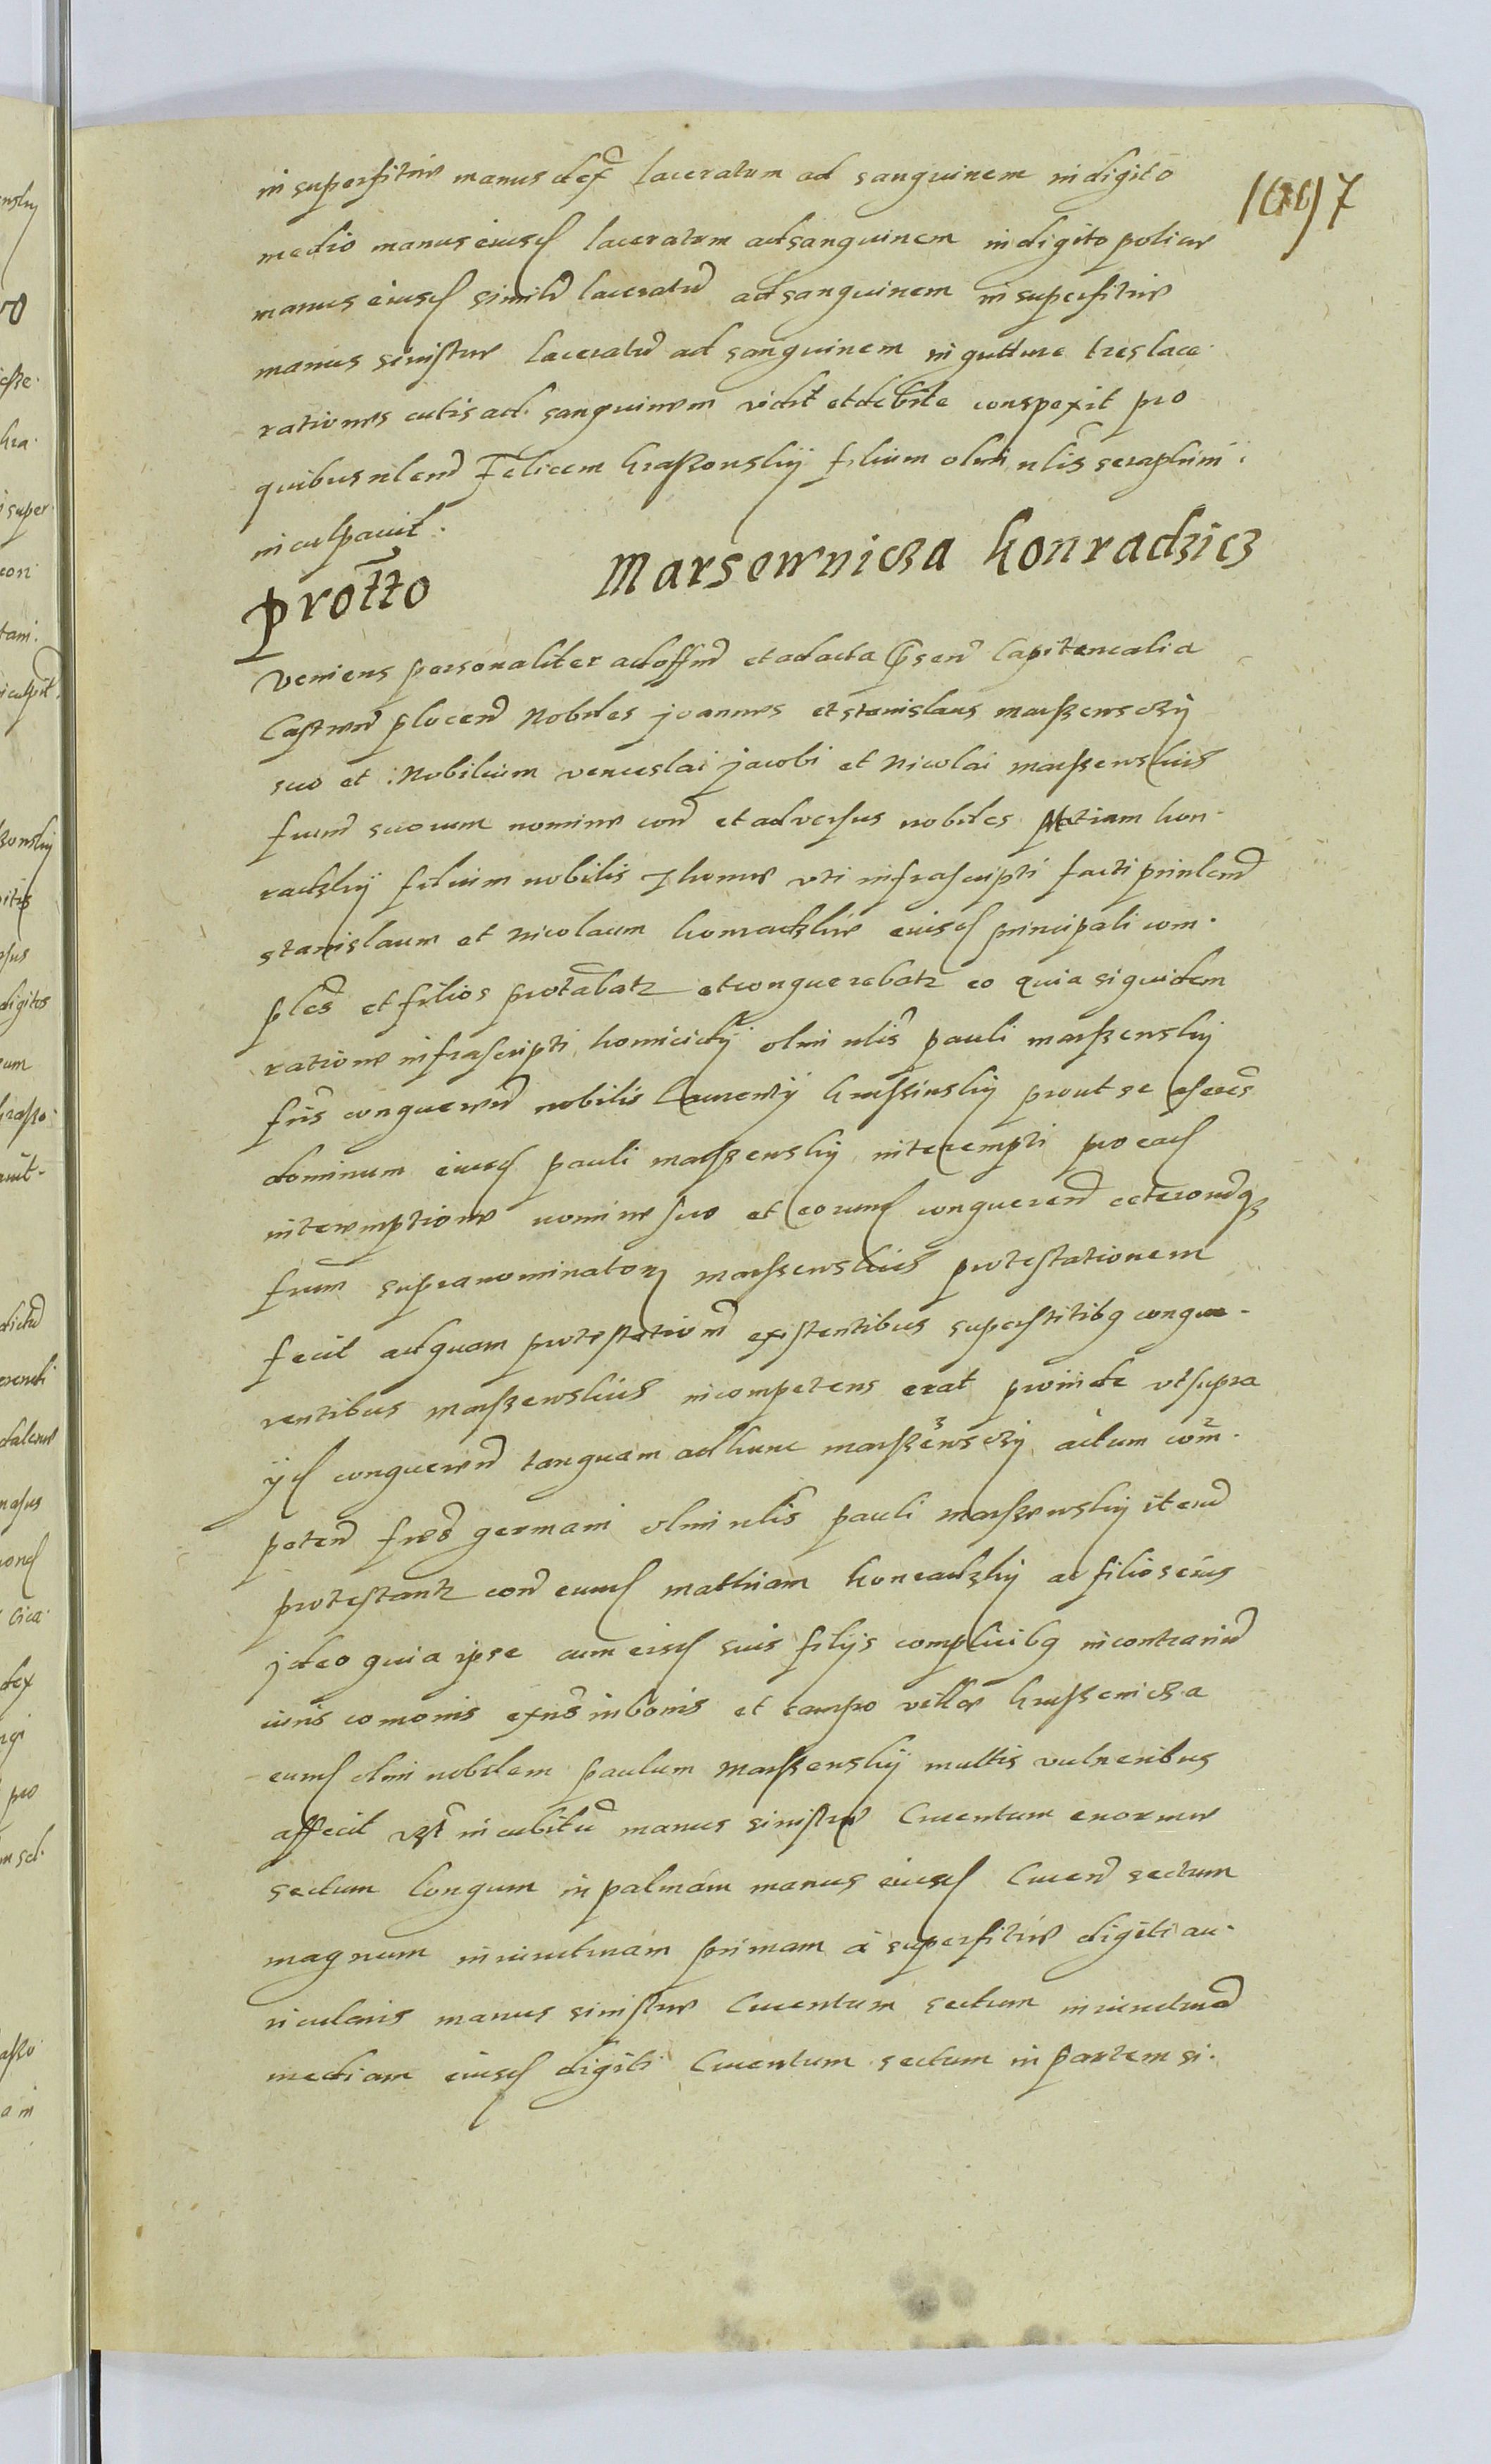 in superfitie manus dex laceratum ad sanguinem in digito
1697
medio manus eiusd laceratum ad sanguinem in digito police
manus eiusd simile laceratu ad sanguinem in superfitie
manus sinistre laceratu ad sanguinem in gutture tres lace
rationes cutis ad sanguinem vidit et debite conspexit pro
quibus Felicem kraszonskij filium olim nlis seraphini
inculpavit.
protto Marsewnicza konradzicz
Veniens personaliter ad offm et ad acta psen Capitanealia
Castren plocen Nobiles joannes et stanislaus marszensczij
suo et Nobilium venceslai jacobi et Nicolai marszenskich
frum suorum nomine con et adversus nobiles Matiam kon
radzkij filium nobilis Thome uti infrascripti facti prinlem
stanislaum et Nicolaum konradzkie eiusd principali com
plices et filios protabatr et conquerebatr eo quia siquidem
ratione infrascripti homicidij olim nlis pauli marszenskij
fris conqueren nobilis Laurentij krussinskij prout se asseres
dominum eiusd pauli marszenskij interempti pro ead
interemptione nomine suo et eorund conqueren ceterorumqz
frum supranominator marszenskich protestationem
fecit ad quam protestation existentibus superstitibq conque
rentibus marszenskich incompetens erat proinde ut supra
ijd conqueren tanquam ad hunc marszensczij actum com
peten fres germani olim nlis pauli marszenskij iteru
protestantr con eund mathiam konradzkij ac filios eius
jdeo quia ipse cum eisd suis filijs complicibq in contrariu
iuris comonis exns in bonis et campo ville krussenicza
eund olim nobilem paulum marszenskij multis vulneribus
affecit in cubitu manus sinistre Cruentum enorme
sectum longum in palmam manus eiusd Cruen sectum
magnum in iuncturam primam a superfitie digiti au
ricularis manus sinistre Cruentum sectum in iunctura
mediam eiusd digiti Cruentum sectum in partem si